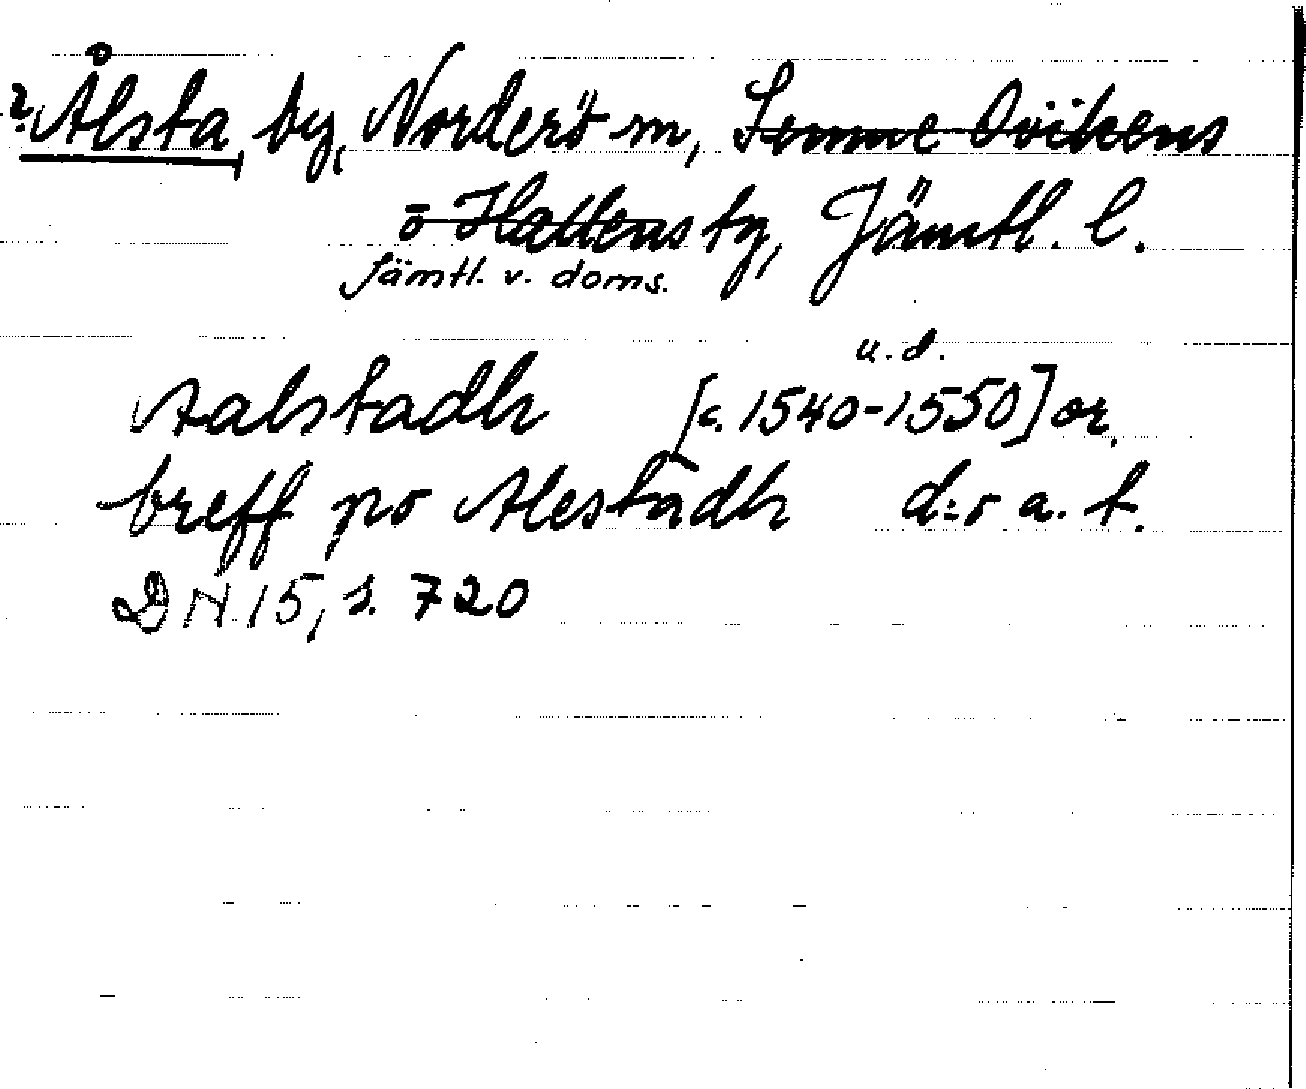 ? Ålsta, by, Norderö sn, Sunne Ovikens
o Hallens tg, Jämtl. l.
Jämtl. v. doms.
u.d.
Aalstadh [c. 1540-1550] or.
breff po Alestadh d:o a. st.
DN 15, s. 720